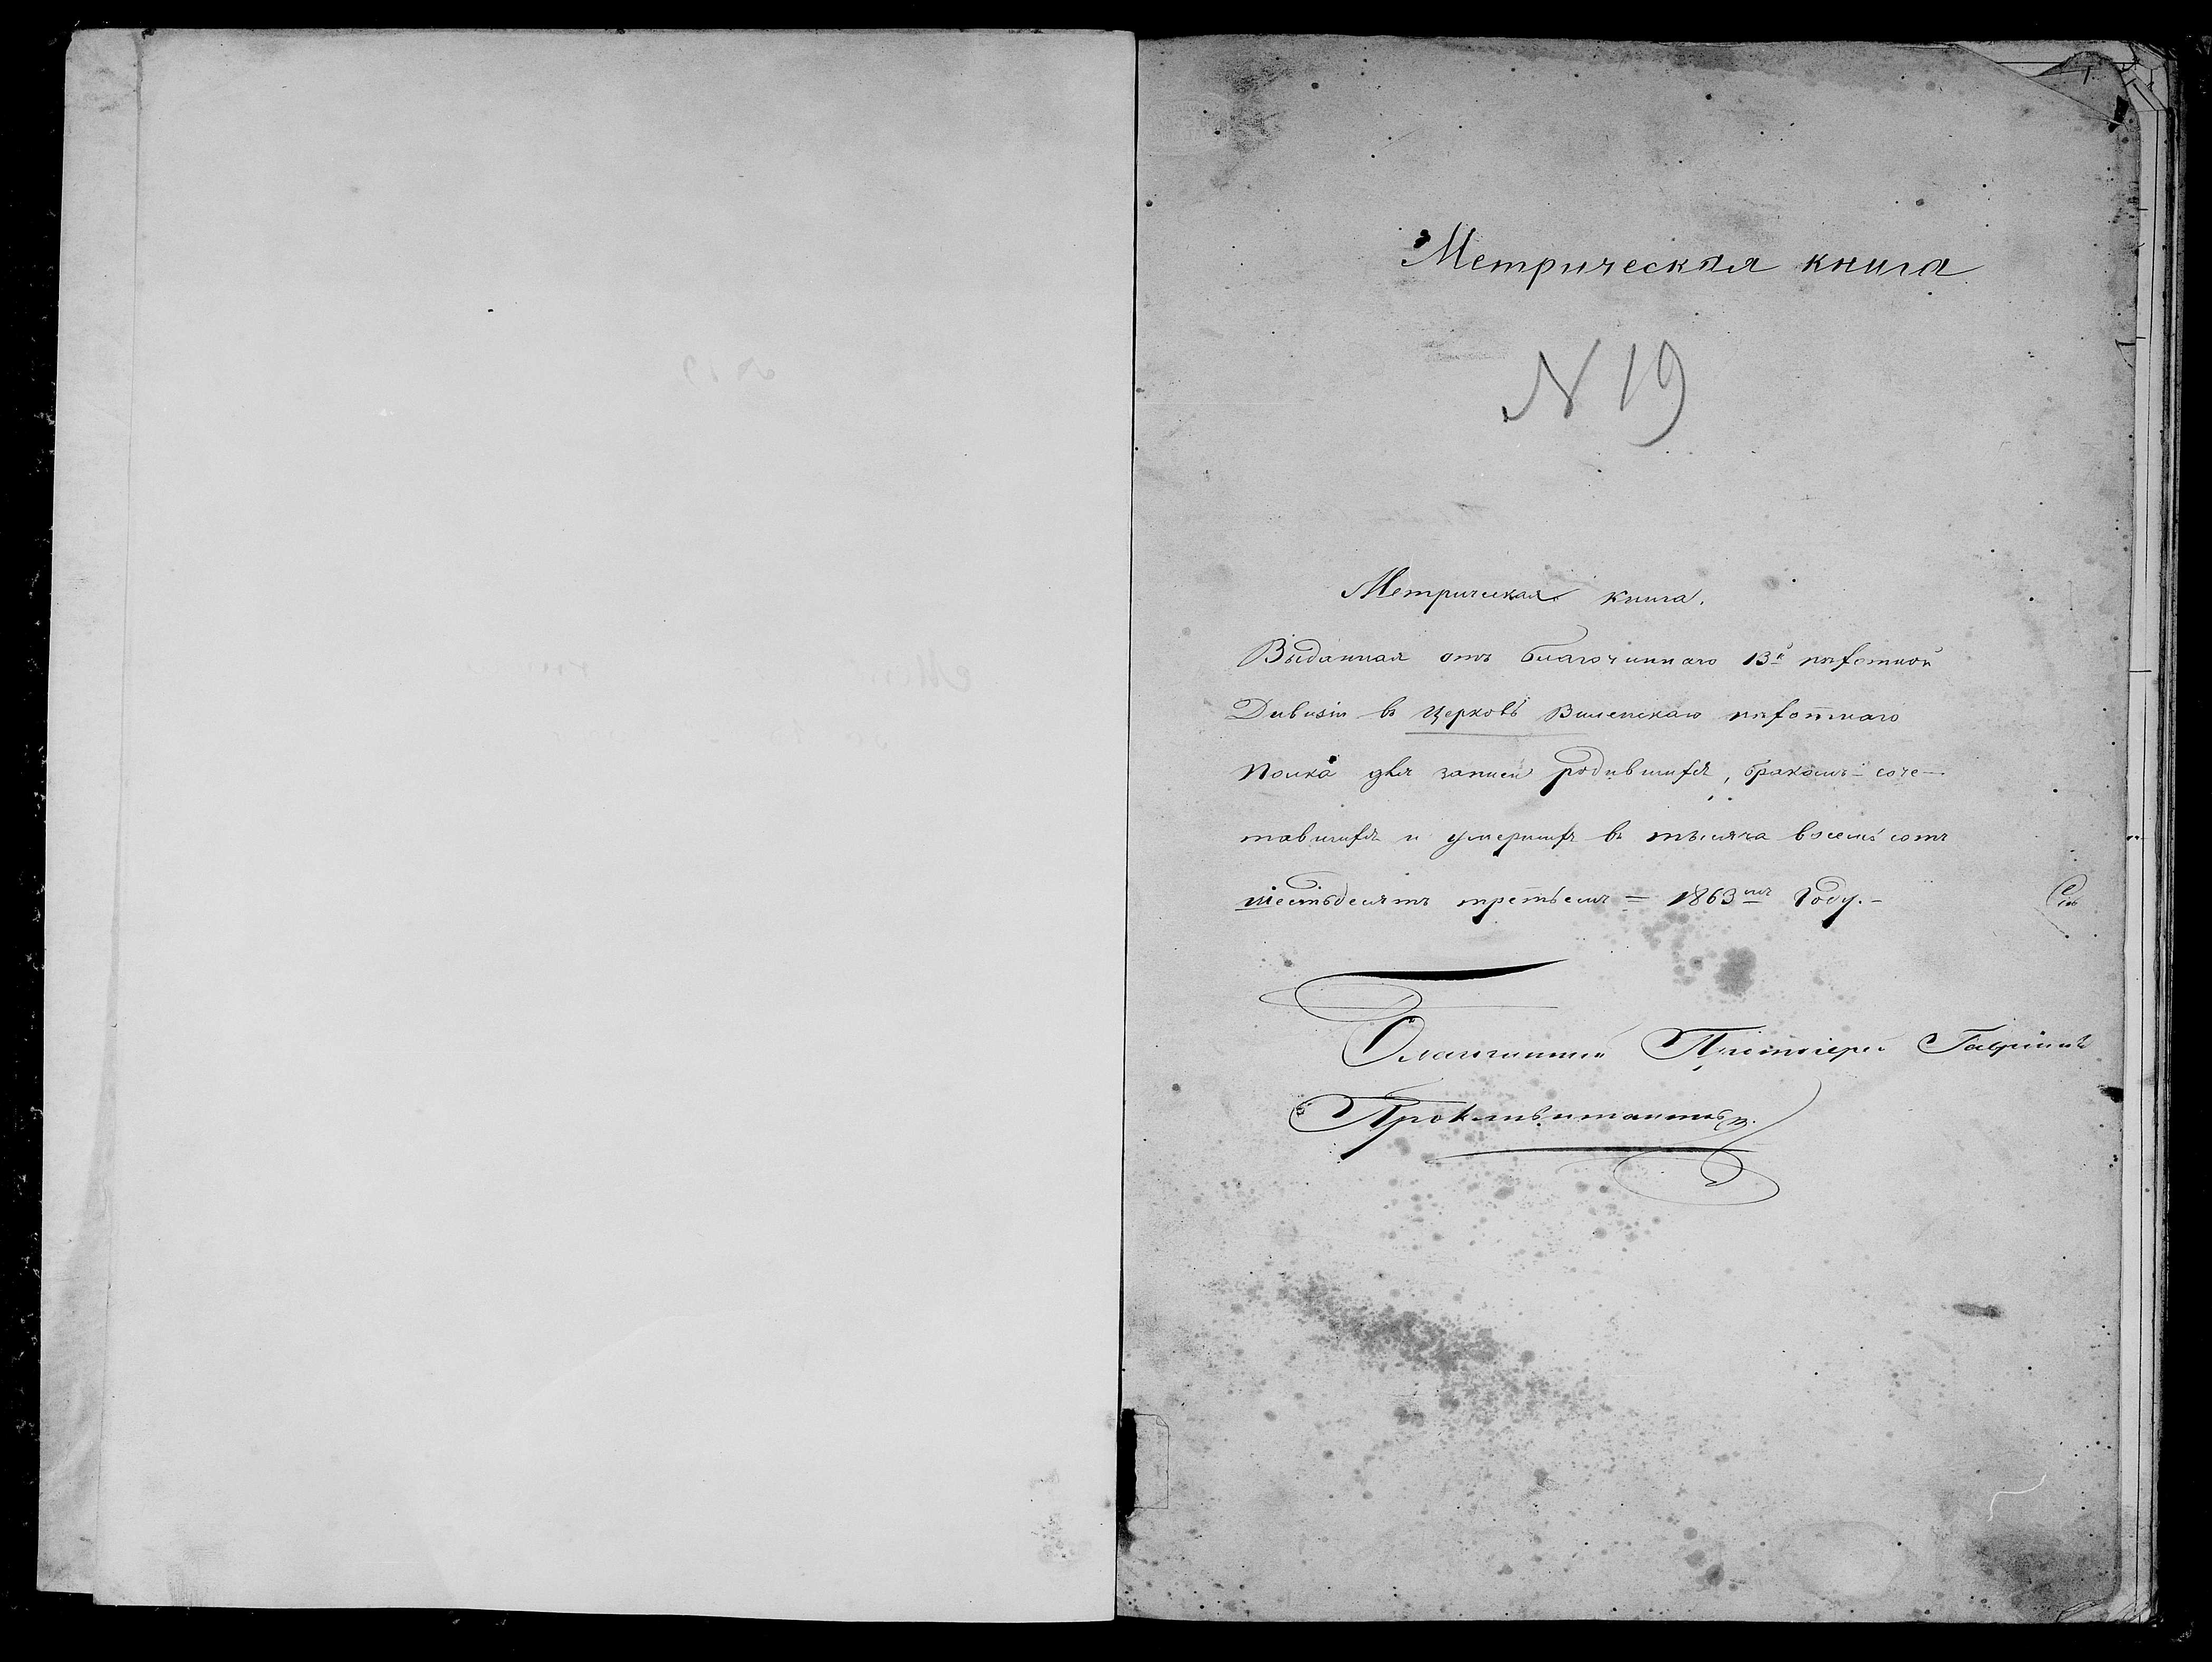 1.
Метрическая книга
N 19
Метрическая книга.
Выданная отъ благочиннаго 13й пѣхотной
Дивизіи въ Церковь Виленскаго пѣхотнаго
полка для записи родившихся, бракомъ- соче-
тавшихся и умершихъ въ тысяча восемьсотъ
шестьдесятъ третьемъ = 1863мъ Году. -
Благочинный Протоіерей Гавріилъ